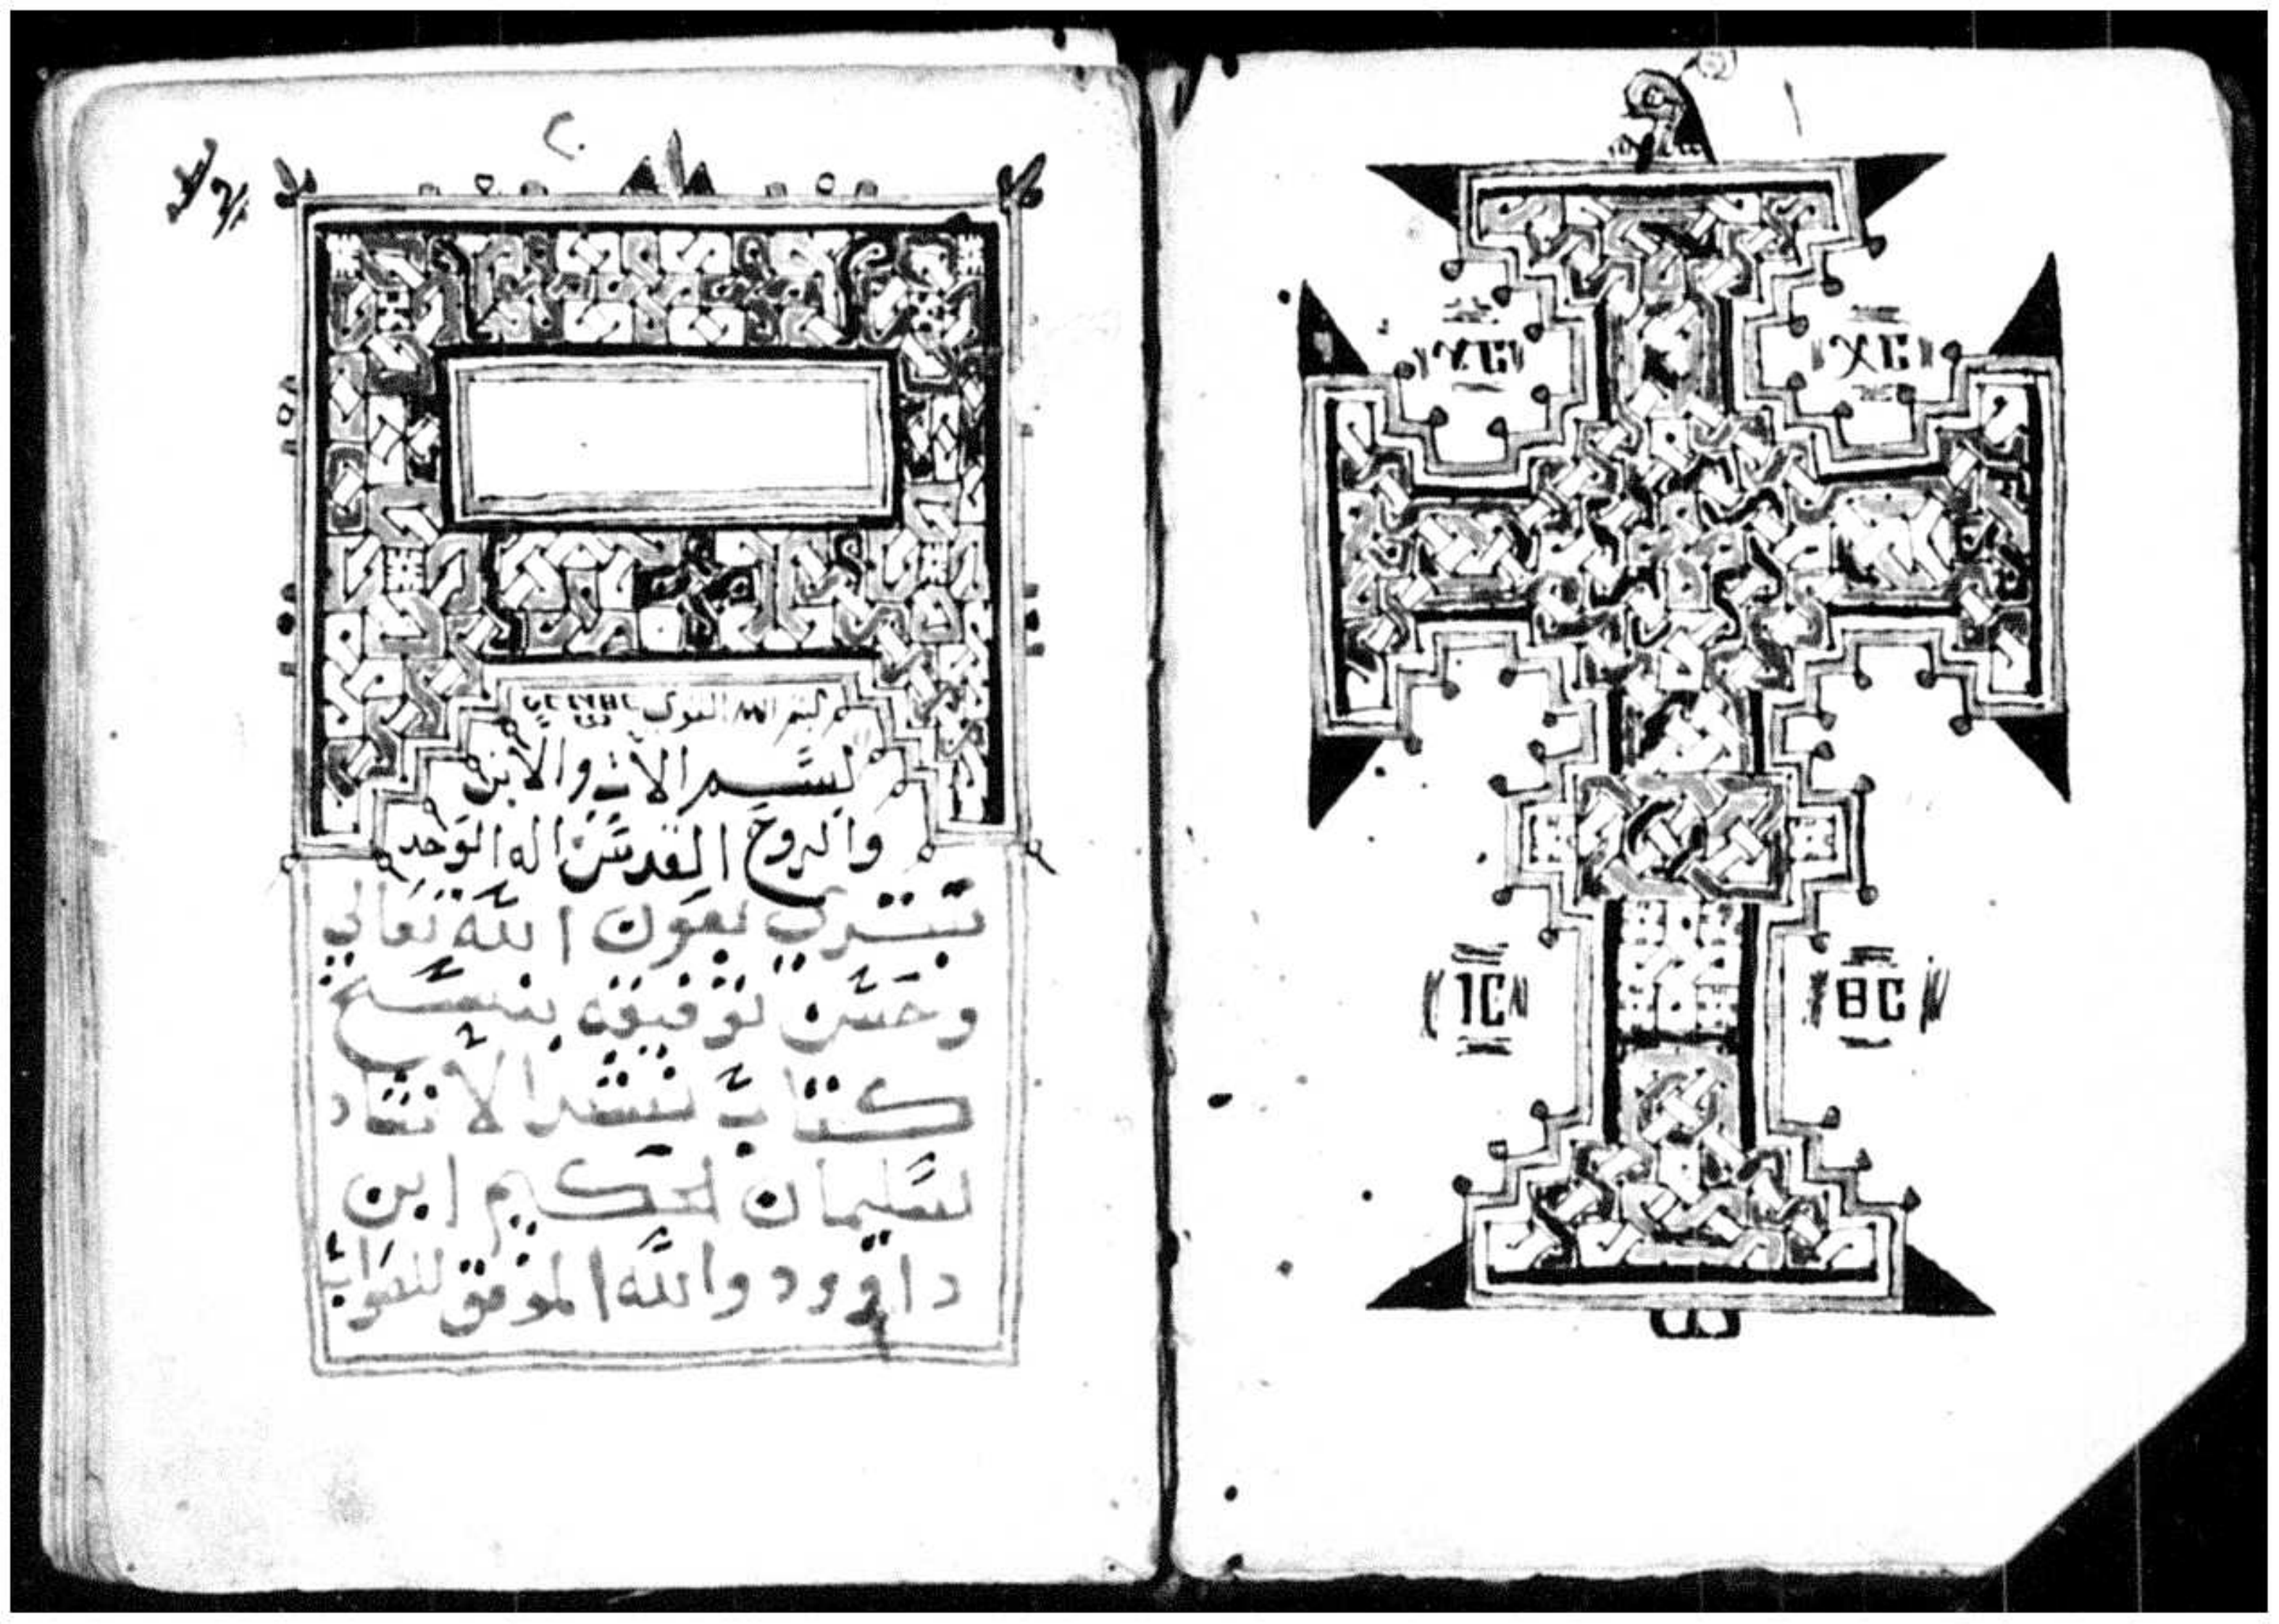 ΧC ΧC
IC ΘC
بسم الله القوي
بسم الاب والابن
والروح القدس اله الوحد
نبتدي بعون الله تعالي
وحسن توفيقه بنسخ
كتاب نشد الانشاد
لسليمان الحكيم ابن
داوود والله الموفق للصواب